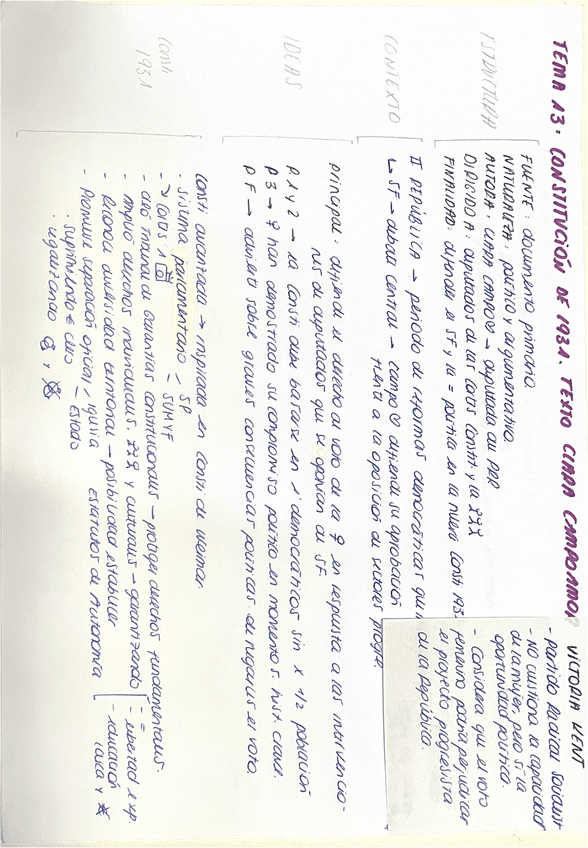 TEMA 13: CONSTITUCIÓN DE 1931. TEXTO CLARA CAMPOAMOR
ESTRUCTURA
FUENTE: documento primario
NATURALEZA: político y argumentativo
AUTORA: CLARA CAMPOR → diputada del PRR
DIRIGIDO A: diputados de las cortes constit. y la
FINALIDAD: defender el SF y la = política en la nueva consti 193
CONTEXTO
II REPÚBLICA → periodo de reformas democráticas
↳ SF → debate central → campo ♡ defiende su aprobación
frente a la oposición de sectores progre
IDEAS
principal: defiende el derecho al voto de la ♀ en respuesta a las intervencio-
nes de diputados que se oponían al SF.
P 1 y 2 → la consti debe basarse en 1' democráticos sin x 1/2 población
P 3 → ♀ han demostrado su compromiso político en momentos hist. clave.
P F → advierte sobre graves consecuencias políticas de negarles el voto.
consti 1931
consti avanzada → inspirada en consti de weimar.
- sistema parlamentario < SP
SUMYF
- → cortes 1
- creó tribunal de garantías constitucionales → protege derechos fundamentales.
- Amplió derechos individuales, y culturales → garantizando
- =
- libertad exp.
- educación laica y
- Reconoce diversidad territorial → posibilidad establecer
ESTATUTOS DE AUTONOMÍA
- Promueve separación oficial / iglesia - Estado
· suprimiendo € clero
· legalizando
VICTORIA KENT
- Partido Radical Socialist
- No cuestiona la capacidad
de la mujer pero sí la
oportunidad política.
- Considera que el voto
femenino podría perjudicar
el proyecto progresista
de la República.